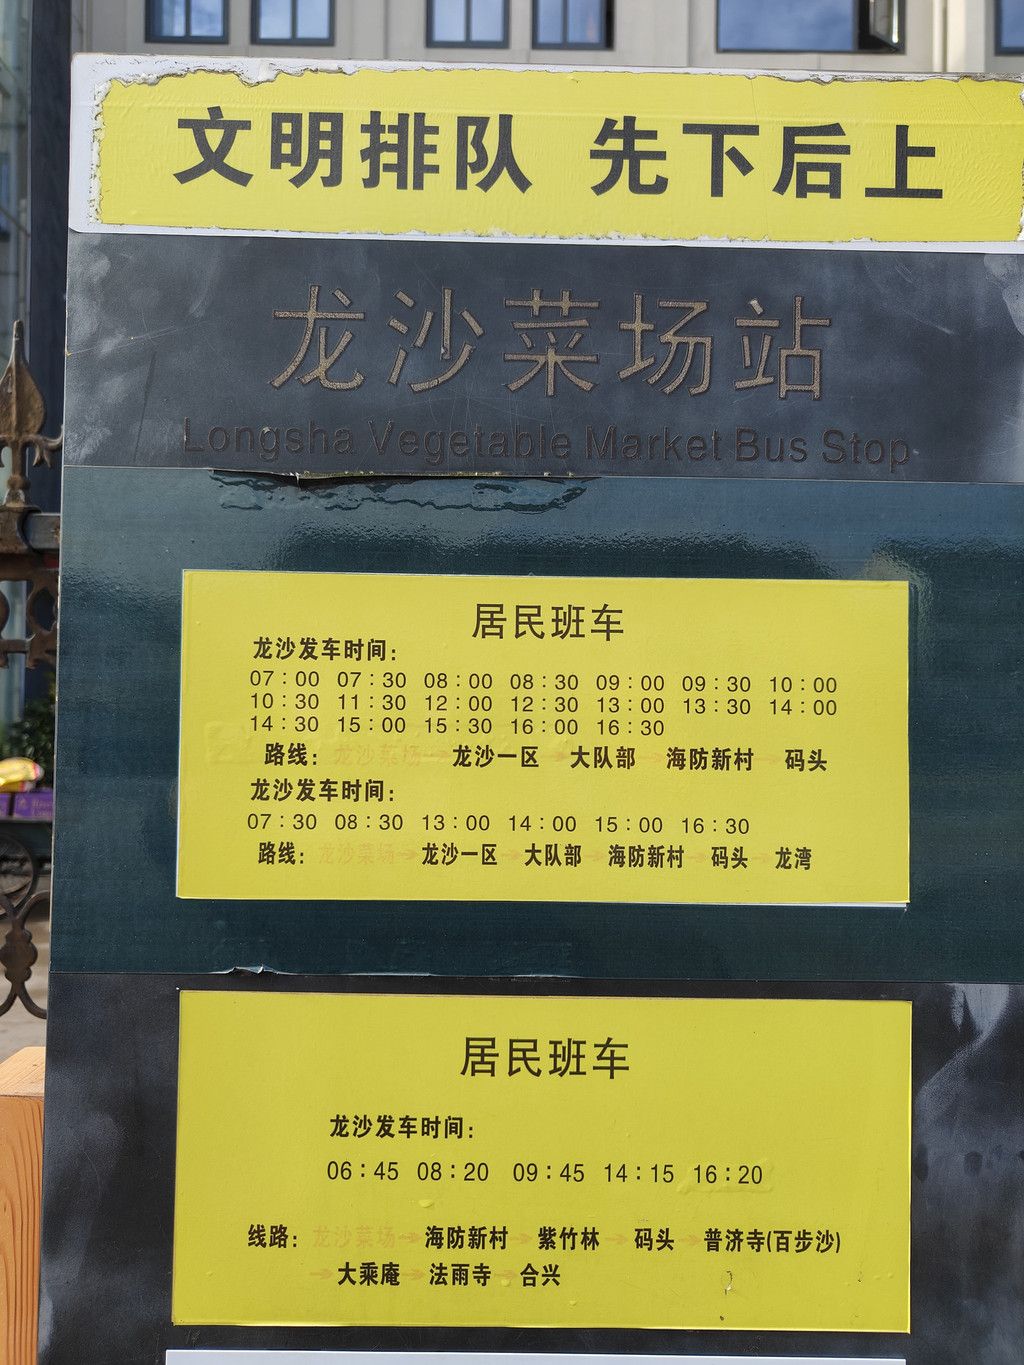 文明排队 先下后上
龙沙菜场站
Longsha Vegetable Market Bus Stop
居民班车
龙沙发车时间:
07:00 07:30 08:00 08:30 09:00 09:30 10:00
10:30 11:30 12:00 12:30 13:00 13:30 14:00
14:30 15:00 15:30 16:00 16:30
路线: 龙沙菜场→龙沙一区→大队部→海防新村→码头
龙沙发车时间:
07:30 08:30 13:00 14:00 15:00 16:30
路线: 龙沙菜场→龙沙一区→大队部→海防新村→码头→龙湾
居民班车
龙沙发车时间:
06:45 08:20 09:45 14:15 16:20
线路: 龙沙菜场→海防新村→紫竹林→码头→普济寺(百步沙)
→大乘庵→法雨寺→合兴